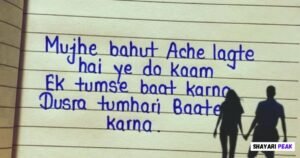 Mujhe bahut Ache lagte
hai ye do kaam
Ek tumse baat karna
Dusra tumhari Baate
karna.
SHAYARI PEAK